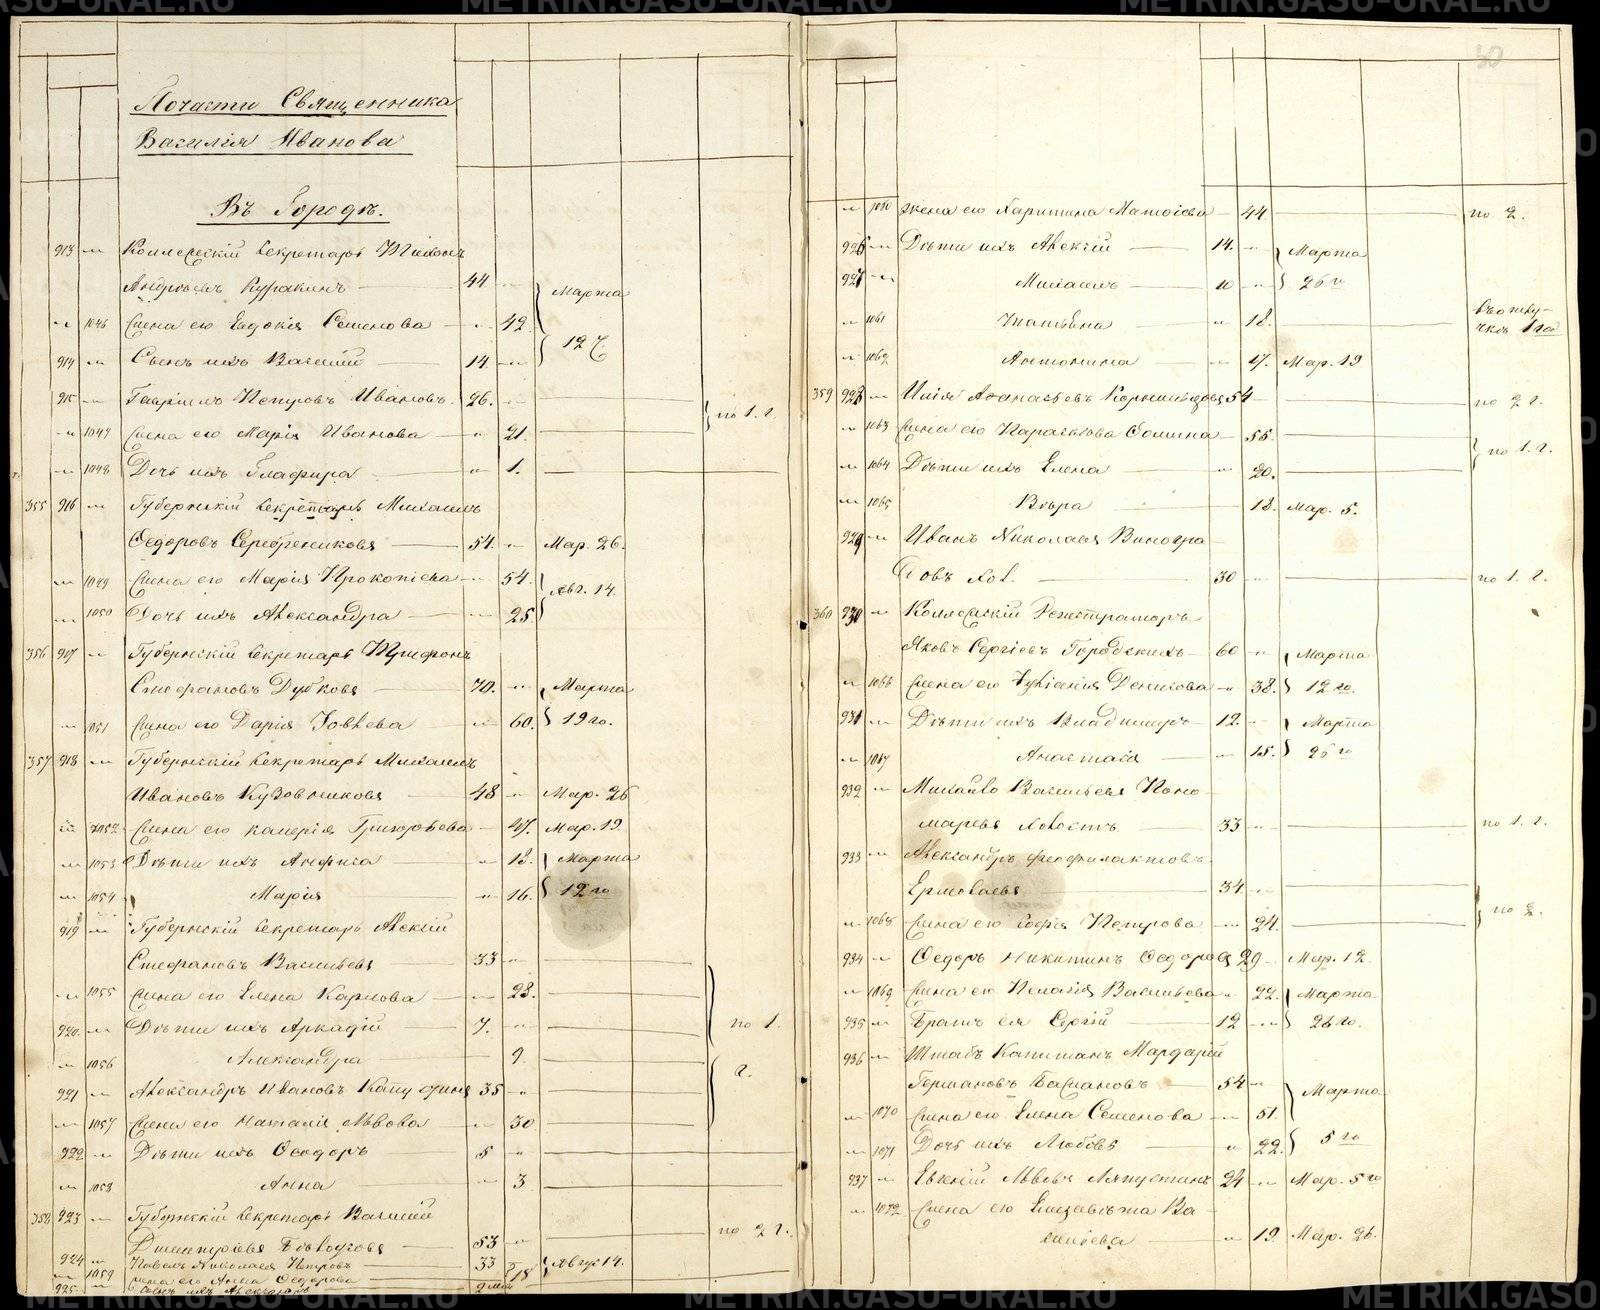 Почасти Священника
Василія Иванова
Въ Городѣ.
913 Коллежскій Секретарь Тихонъ
Андреевъ Куракинъ 44 Марта
1046 Жена его Евдокія Семенова 42.
914 Сынъ ихъ Василій 14.
915 Гавріилъ Петровъ Ивановъ 26. по 1. г.
1047 Жена его Марія Иванова 21.
1048 Дочь ихъ Глафира 1.
355 916 Губернскій Секретарь Михаилъ
Ѳедоровъ Серебрениковъ 54. Мар. 26.
1049 Жена его Марія Прокопіева 54. Авг. 14.
1050 Дочь ихъ Александра 25.
356 917 Губернскій Секретарь Трифонъ
Стефановъ Дубковъ 70. Марта
1051 Жена его Дарія Іовлева 60. 19 го.
357 918 Губернскій Секретарь Михаилъ
Ивановъ Кузовниковъ 48 Мар. 26
1052 Жена его Калерія Григорьева 47. Мар. 19.
1053 Дѣти ихъ Анфиса 18. Марта
1054 Марія 16. 12 го
919 Губернскій Секретарь Алексій
Стефановъ Васильевъ 33
1055 Жена его Елена Карлова 28.
920 Дѣти ихъ Аркадій 7. по 1.
1056 Александра 9. г.
921 Александръ Ивановъ 35
1057 Жена его Наталія Львова 30
922 Дѣти ихъ Ѳеодоръ 5
1058 Анна 3
358 923 Губернскій Секретарь Василій
Дмитріевъ 53 по 2 г.
924 Павелъ Николаевъ Петровъ 33 Авгус 14.
1059 Жена его Анна Ѳедорова 18
925 Сынъ ихъ Александръ
50
1060 Жена его Харитина Матвіева 44 по 2.
926 Дѣти ихъ Алексій 14. Марта
927 Михаилъ 10 26 го
1061 Татьяна 18.
1062 Антонина 17. Мар. 19
359 928 Илія Аѳанасьевъ 54 по 2 г.
1063 Жена его Параскева Ѳомина 55. по 1. г.
1064 Дѣти ихъ Елена 20.
1065 Вѣра 18. Мар. 5.
929 Иванъ Николаевъ Виногра
довъ Хол. 30 по 1. г.
360 930 Коллежскій Регистраторъ
Яковъ Сергіевъ Городскихъ 60 Марта
1066 Жена его Іуліанія Денисова 38. 12 го.
931 Дѣти ихъ Владимиръ 12. Марта
1067 Анастасія 15. 26 го
932 Михаилъ Васильевъ Поно
маревъ Холостъ 33 по 1. г.
933 Александръ Феофилактовъ
Ермолаевъ 34 по 2.
1068 Жена его Софія Петрова 24.
934 Ѳедоръ Никитинъ Ѳедоровъ 29 Мар. 12.
1069 Жена его Пелагія Васильева 22. Марта
935 Братъ ея Сергій 12 26 го.
936 Штабъ Капитанъ Мардарій
Германовъ Басмановъ 54 Марта
1070 Жена его Елена Семенова 51. 5 го
1071 Дочь ихъ Любовь 22.
937 Евгеній Львовъ Ляпустинъ 24 Мар. 5 го
1072 Жена его Елизавета Ва
сильева 19 Мар. 26.
METRIKI.GASO-URAL.RU